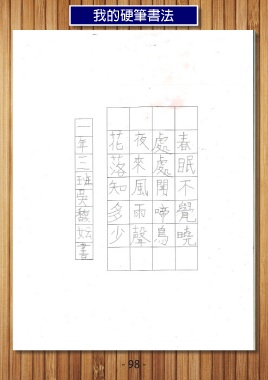 我的硬筆書法
春眠不覺曉
處處聞啼鳥
夜來風雨聲
花落知多少
一年三班吳馥妘書
- 98 -